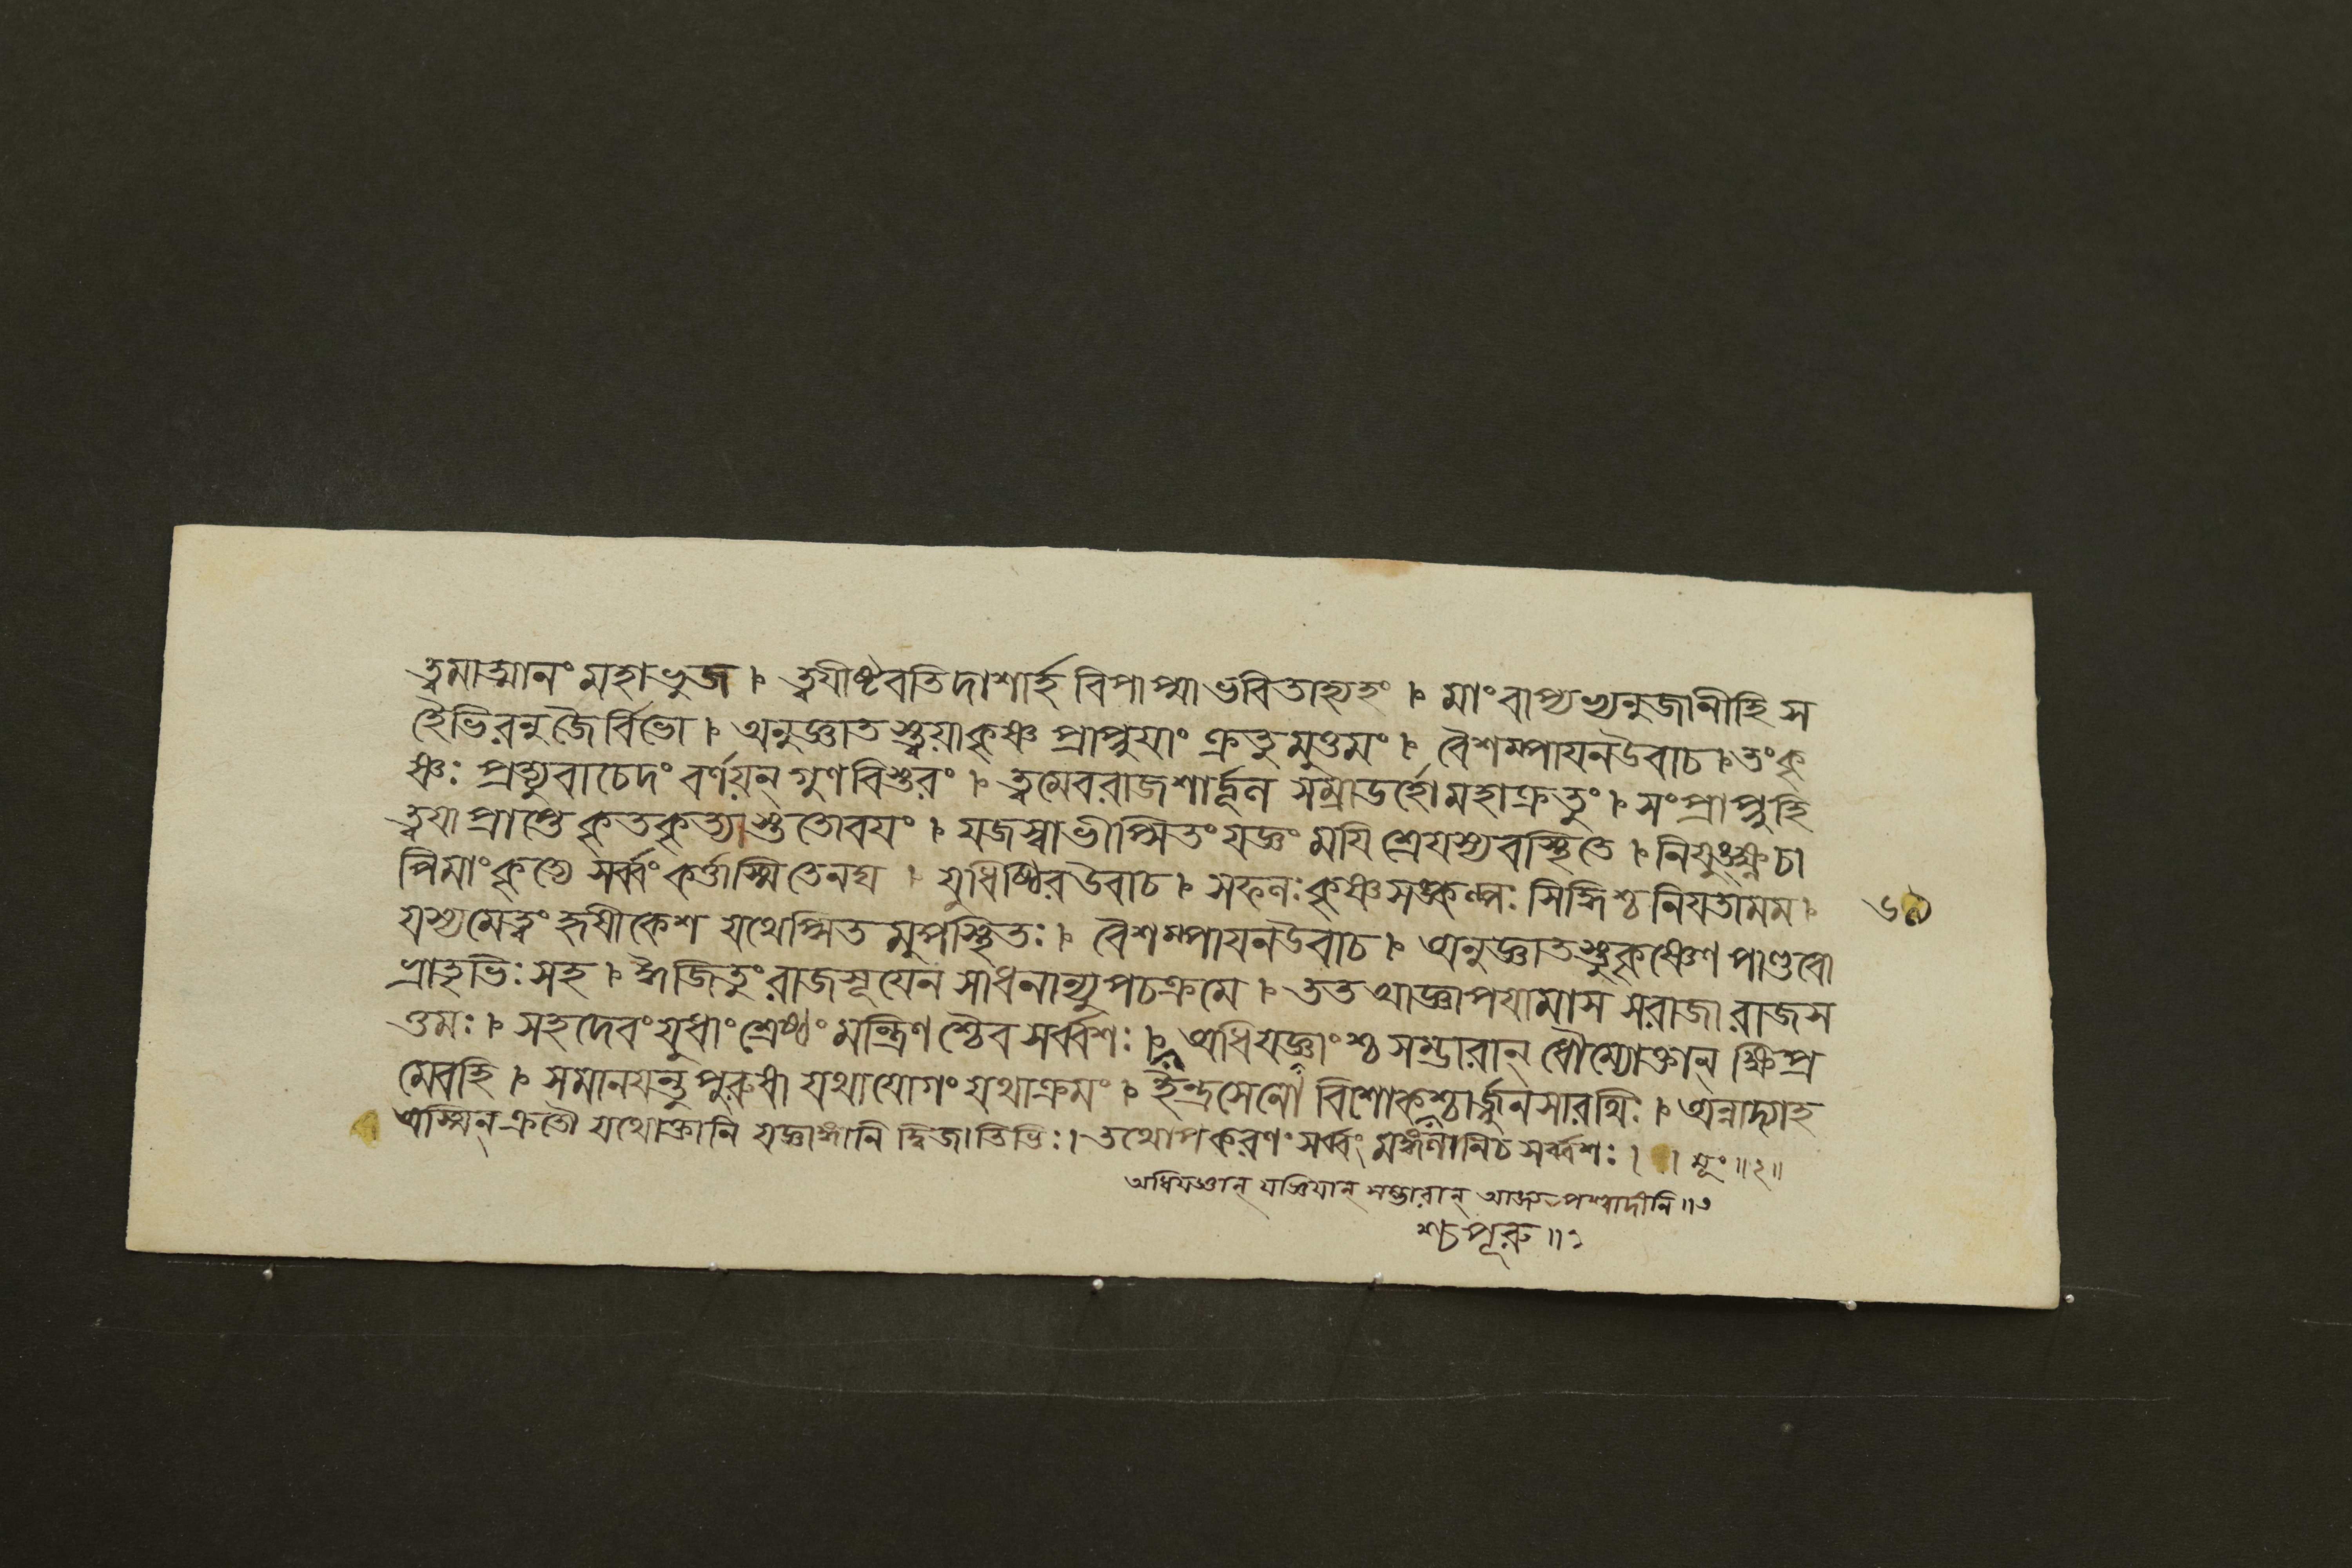 ত্বমাত্মানং মহাভুজ । ত্বযীষ্টবতিদাশার্হ বিপাপ্মা ভবিতাহ্যহং । মাং বাপ্যভ্যনুজানীহি স
হৈভিরনুজৈর্বিভো । অনুজ্ঞাতস্ত্বয়াকৃষ্ণ প্রাপ্নুযাং ক্রতুমুত্তমং । বৈশম্পাযনউবাচ । তংকৃ
ষ্ণঃ প্রত্যুবাচেদং বর্ণয়ন্ গুণবিস্তরং । ত্বমেবরাজশার্দ্দূল সম্রাডর্হো মহাক্রতুং । সংপ্রাপ্নুহি
ত্বযাপ্রাপ্তে কৃতকৃত্যাস্ততোবযং । যজস্বাভীপ্সিতং যজ্ঞং মযিশ্রেযস্যবস্থিতে । নিযুংক্ষ্বচা
পিমাং কৃত্যে সর্ব্বং কর্ত্তাস্মিতেনঘ । যুধিষ্ঠিরউবাচ । সফলঃ কৃষ্ণসঙ্কল্পঃ সিদ্ধিশ্চ নিযতামম ।
যস্যমেত্বং হৃষীকেশ যথেপ্সিতমুপস্থিতঃ । বৈশম্পাযনউবাচ । অনুজ্ঞাতস্তুকৃষ্ণেণ পাণ্ডবো
ভ্রাতৃভিঃ সহ । ঈজিতুং রাজসূযেন সাধনান্যুপচক্রমে । তত আজ্ঞাপযামাস সরাজা রাজস
ত্তমঃ । সহদেবং যুধাং শ্রেষ্ঠং মন্ত্রিণশ্চৈব সর্ব্বশঃ । অধিযজ্ঞাংশ্চ সম্ভারান্ ধৌম্যোক্তান্ ক্ষিপ্র
মেবহি । সমানযন্তু পুরুষা যথাযোগং যথাক্রমং । ইন্দ্রসেনো বিশোকশ্চার্জ্জুনসারথিঃ । অন্নাদ্যাহ
অস্মিন্ ক্রতৌ যথোক্তানি যজ্ঞাঙ্গানি দ্বিজাতিভিঃ । তথোপকরণং সর্ব্বং মঙ্গলানিচ সর্ব্বশঃ ।
অধিযজ্ঞান্ যজ্ঞিযান্ সম্ভারান্ পশ্বাদীনি ॥৩
শ্চ পূরু ॥১